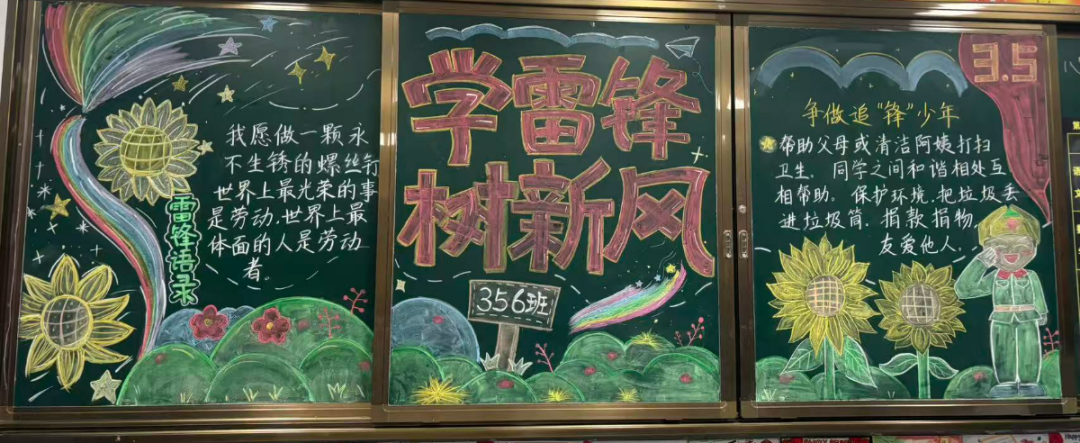 我愿做一颗永
不生锈的螺丝钉
世界上最光荣的事
是劳动,世界上最
体面的人是劳动
者。
雷锋语录
学雷锋
树新风
356班
3.5
争做追“锋”少年
帮助父母或清洁阿姨打扫
卫生。同学之间和谐相处互
相帮助。保护环境,把垃圾丢
进垃圾筒。捐款捐物,
友爱他人。